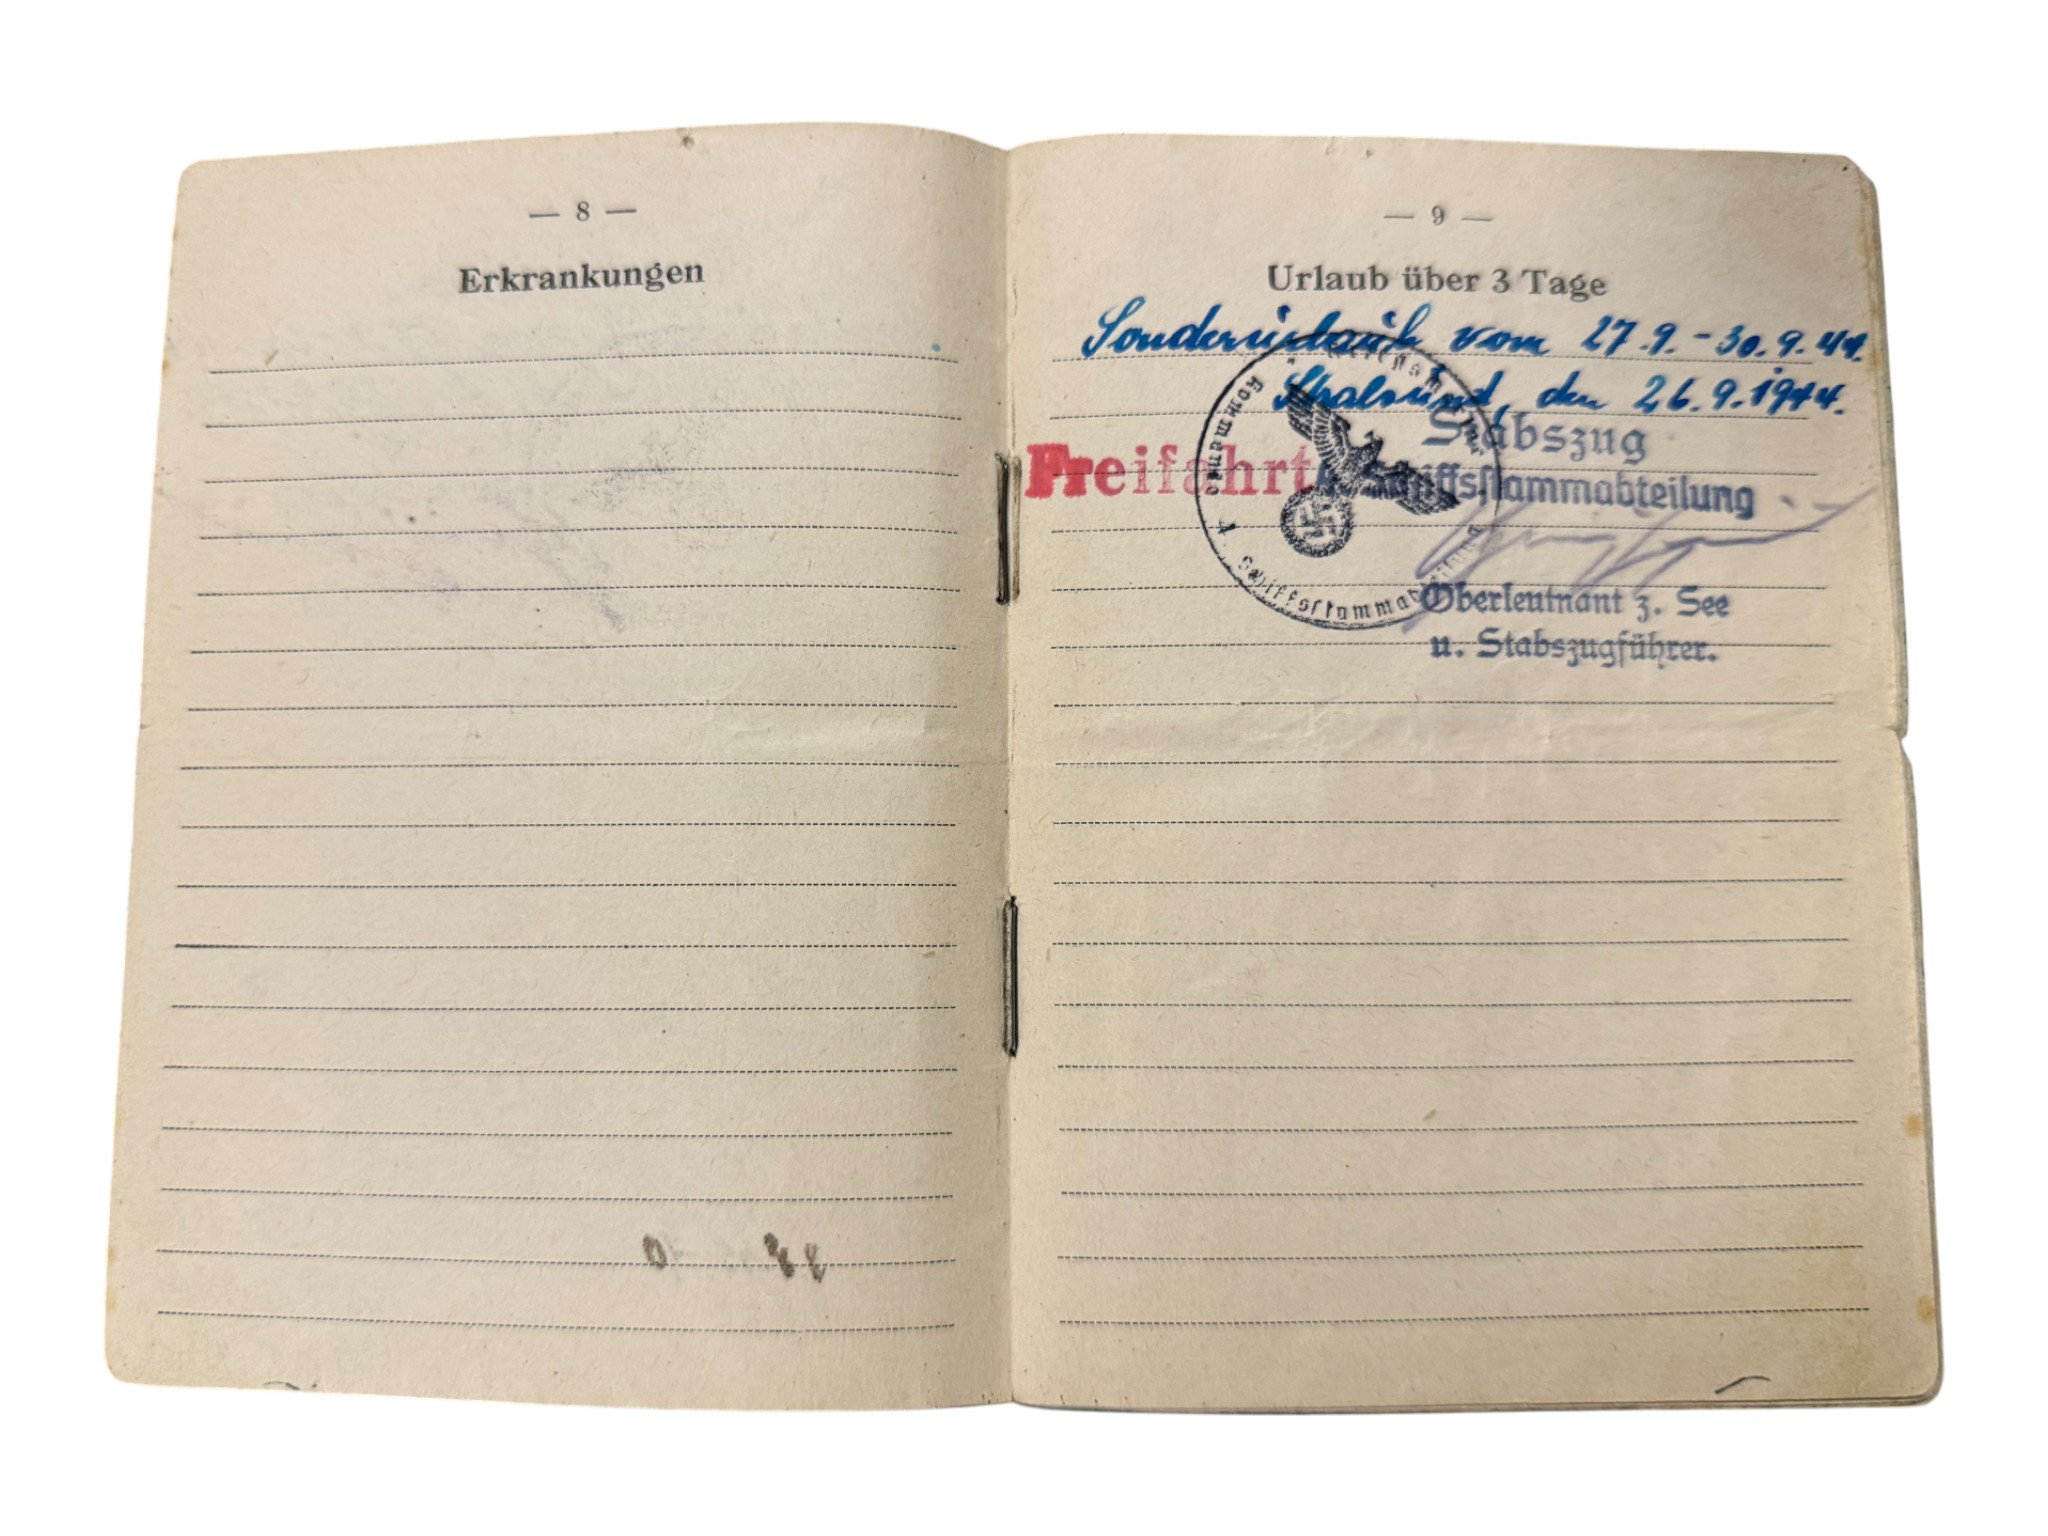 — 8 —
Erkrankungen
— 9 —
Urlaub über 3 Tage
Sonderurlaub vom 27.9.-30.9.44.
Stralsund, den 26.9.1944.
Stabszug
Freifahrt
Schiffsstammabteilung
Kommando
Schiffsstammabteilung
Oberleutnant z. See
u. Stabszugführer.